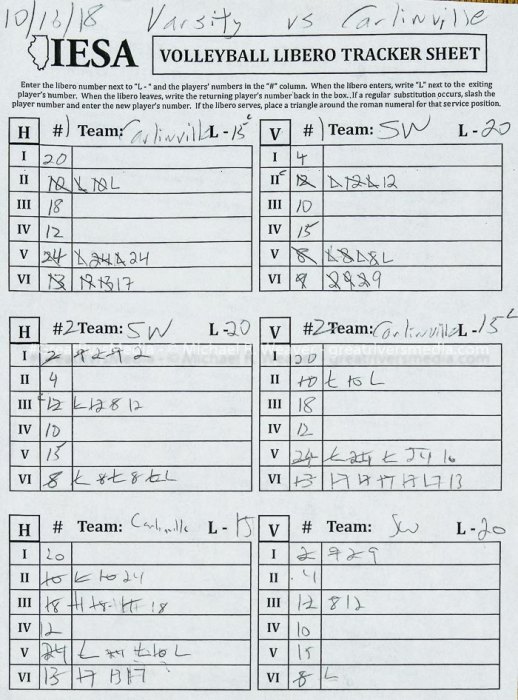 10/16/18 Varsity vs Carlinville
IESA VOLLEYBALL LIBERO TRACKER SHEET
Enter the libero number next to "L - " and the players' numbers in the "#" column. When the libero enters, write "L" next to the exiting
player's number. When the libero leaves, write the returning player's number back in the box. If a regular substitution occurs, slash the
player number and enter the new player's number. If the libero serves, place a triangle around the roman numeral for that service position.
H #1 Team: Carlinville L - 15 c
I 20
II L 10 L
III 18
IV 12
V 24 L 24 L 24
VI 13 17 13 17
V #1 Team: SW L - 20
I 4
II c 12 L 12 L 12
III 10
IV 15
V 8 L 8 L 8 L
VI 9 2 9 2 9
H #2 Team: SW L - 20
I 2 9 2 9 2
II 4
III c 12 L 12 8 12
IV 10
V 15
VI 8 L 8 L 8 L L
V #2 Team: Carlinville L - 15 L
I 20
II 10 L 10 L
III 18
IV 12
V 24 L 24 L 24 16
VI 13 17 17 17 17 13
H # Team: Carlinville L - 15
I 20
II 10 L 10 24
III 18 11 18 11 18
IV 12
V 24 L 24 L 10 L
VI 13 17 13 17
V # Team: SW L - 20
I 2 9 2 9
II 4
III 12 8 12
IV 10
V 15
VI 8 L